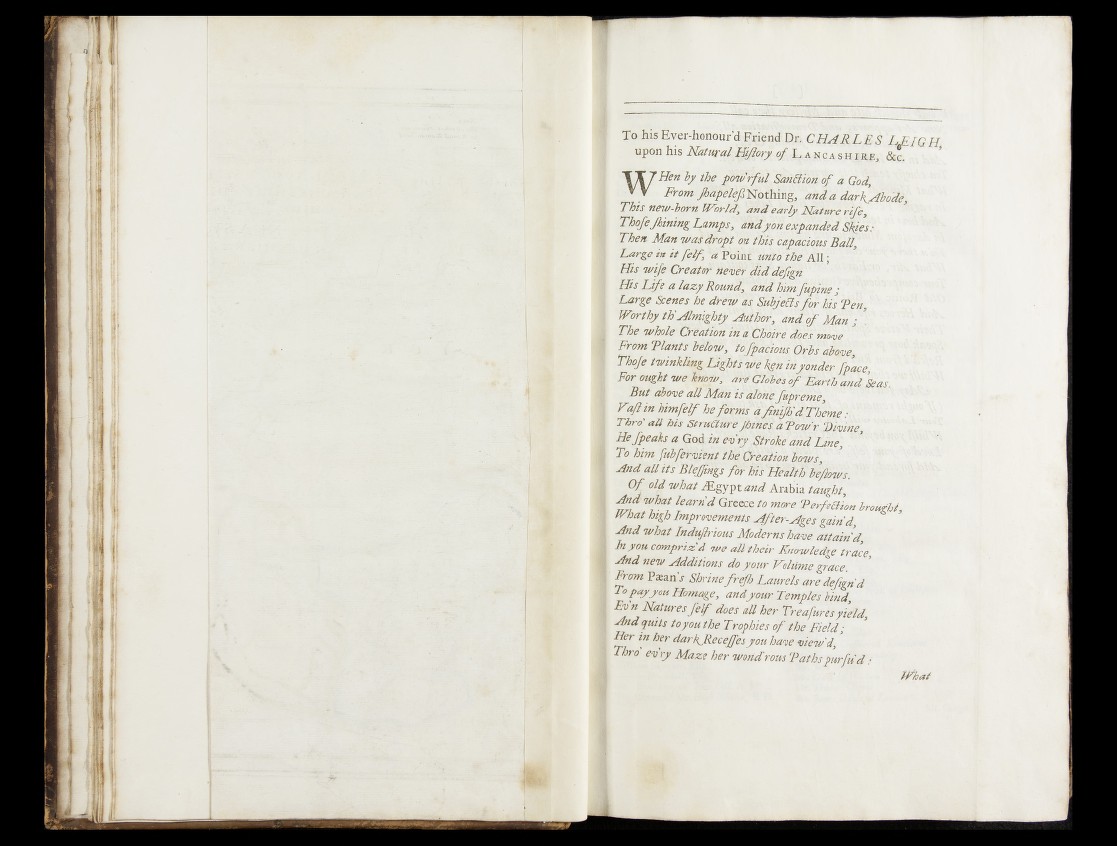 To his Ever-honour'd Friend Dr. CHARLES LEIGH,
upon his Natural Hiſtory of LANCASHIRE, &c.
WHen by the pow'rful Sanction of a God,
From ſhapeleſs Nothing, and a dark Abode,
This new-born World, and early Nature riſe,
Thoſe ſhining Lamps, and yon expanded Skies:
Then Man was dropt on this capacious Ball,
Large in it ſelf, a Point unto the All;
His wiſe Creator never did deſign
His Life a lazy Round, and him ſupine;
Large Scenes he drew as Subjects for his Pen,
Worthy th' Almighty Author, and of Man;
The whole Creation in a Choire does move
From Plants below, to ſpacious Orbs above,
Thoſe twinkling Lights we ken in yonder ſpace,
For ought we know, are Globes of Earth and Seas.
But above all Man is alone ſupreme,
Vaſt in himſelf he forms a finiſh'd Theme:
Thro' all his Structure ſhines a Pow'r Divine,
He ſpeaks a God in ev'ry Stroke and Line,
To him ſubſervient the Creation bows,
And all its Bleſſings for his Health beſtows.
Of old what Ægypt and Arabia taught,
And what learn'd Greece to more Perfection brought,
What high Improvements After-Ages gain'd,
And what Induſtrious Moderns have attain'd,
In you compriz'd we all their Knowledge trace,
And new Additions do your Volume grace.
From Pæan's Shrine freſh Laurels are deſign'd
To pay you Homage, and your Temples bind,
Ev'n Natures ſelf does all her Treaſures yield,
And quits to you the Trophies of the Field;
Her in her dark Receſſes you have view'd,
Thro' ev'ry Maze her wond'rous Paths purſu'd:
What